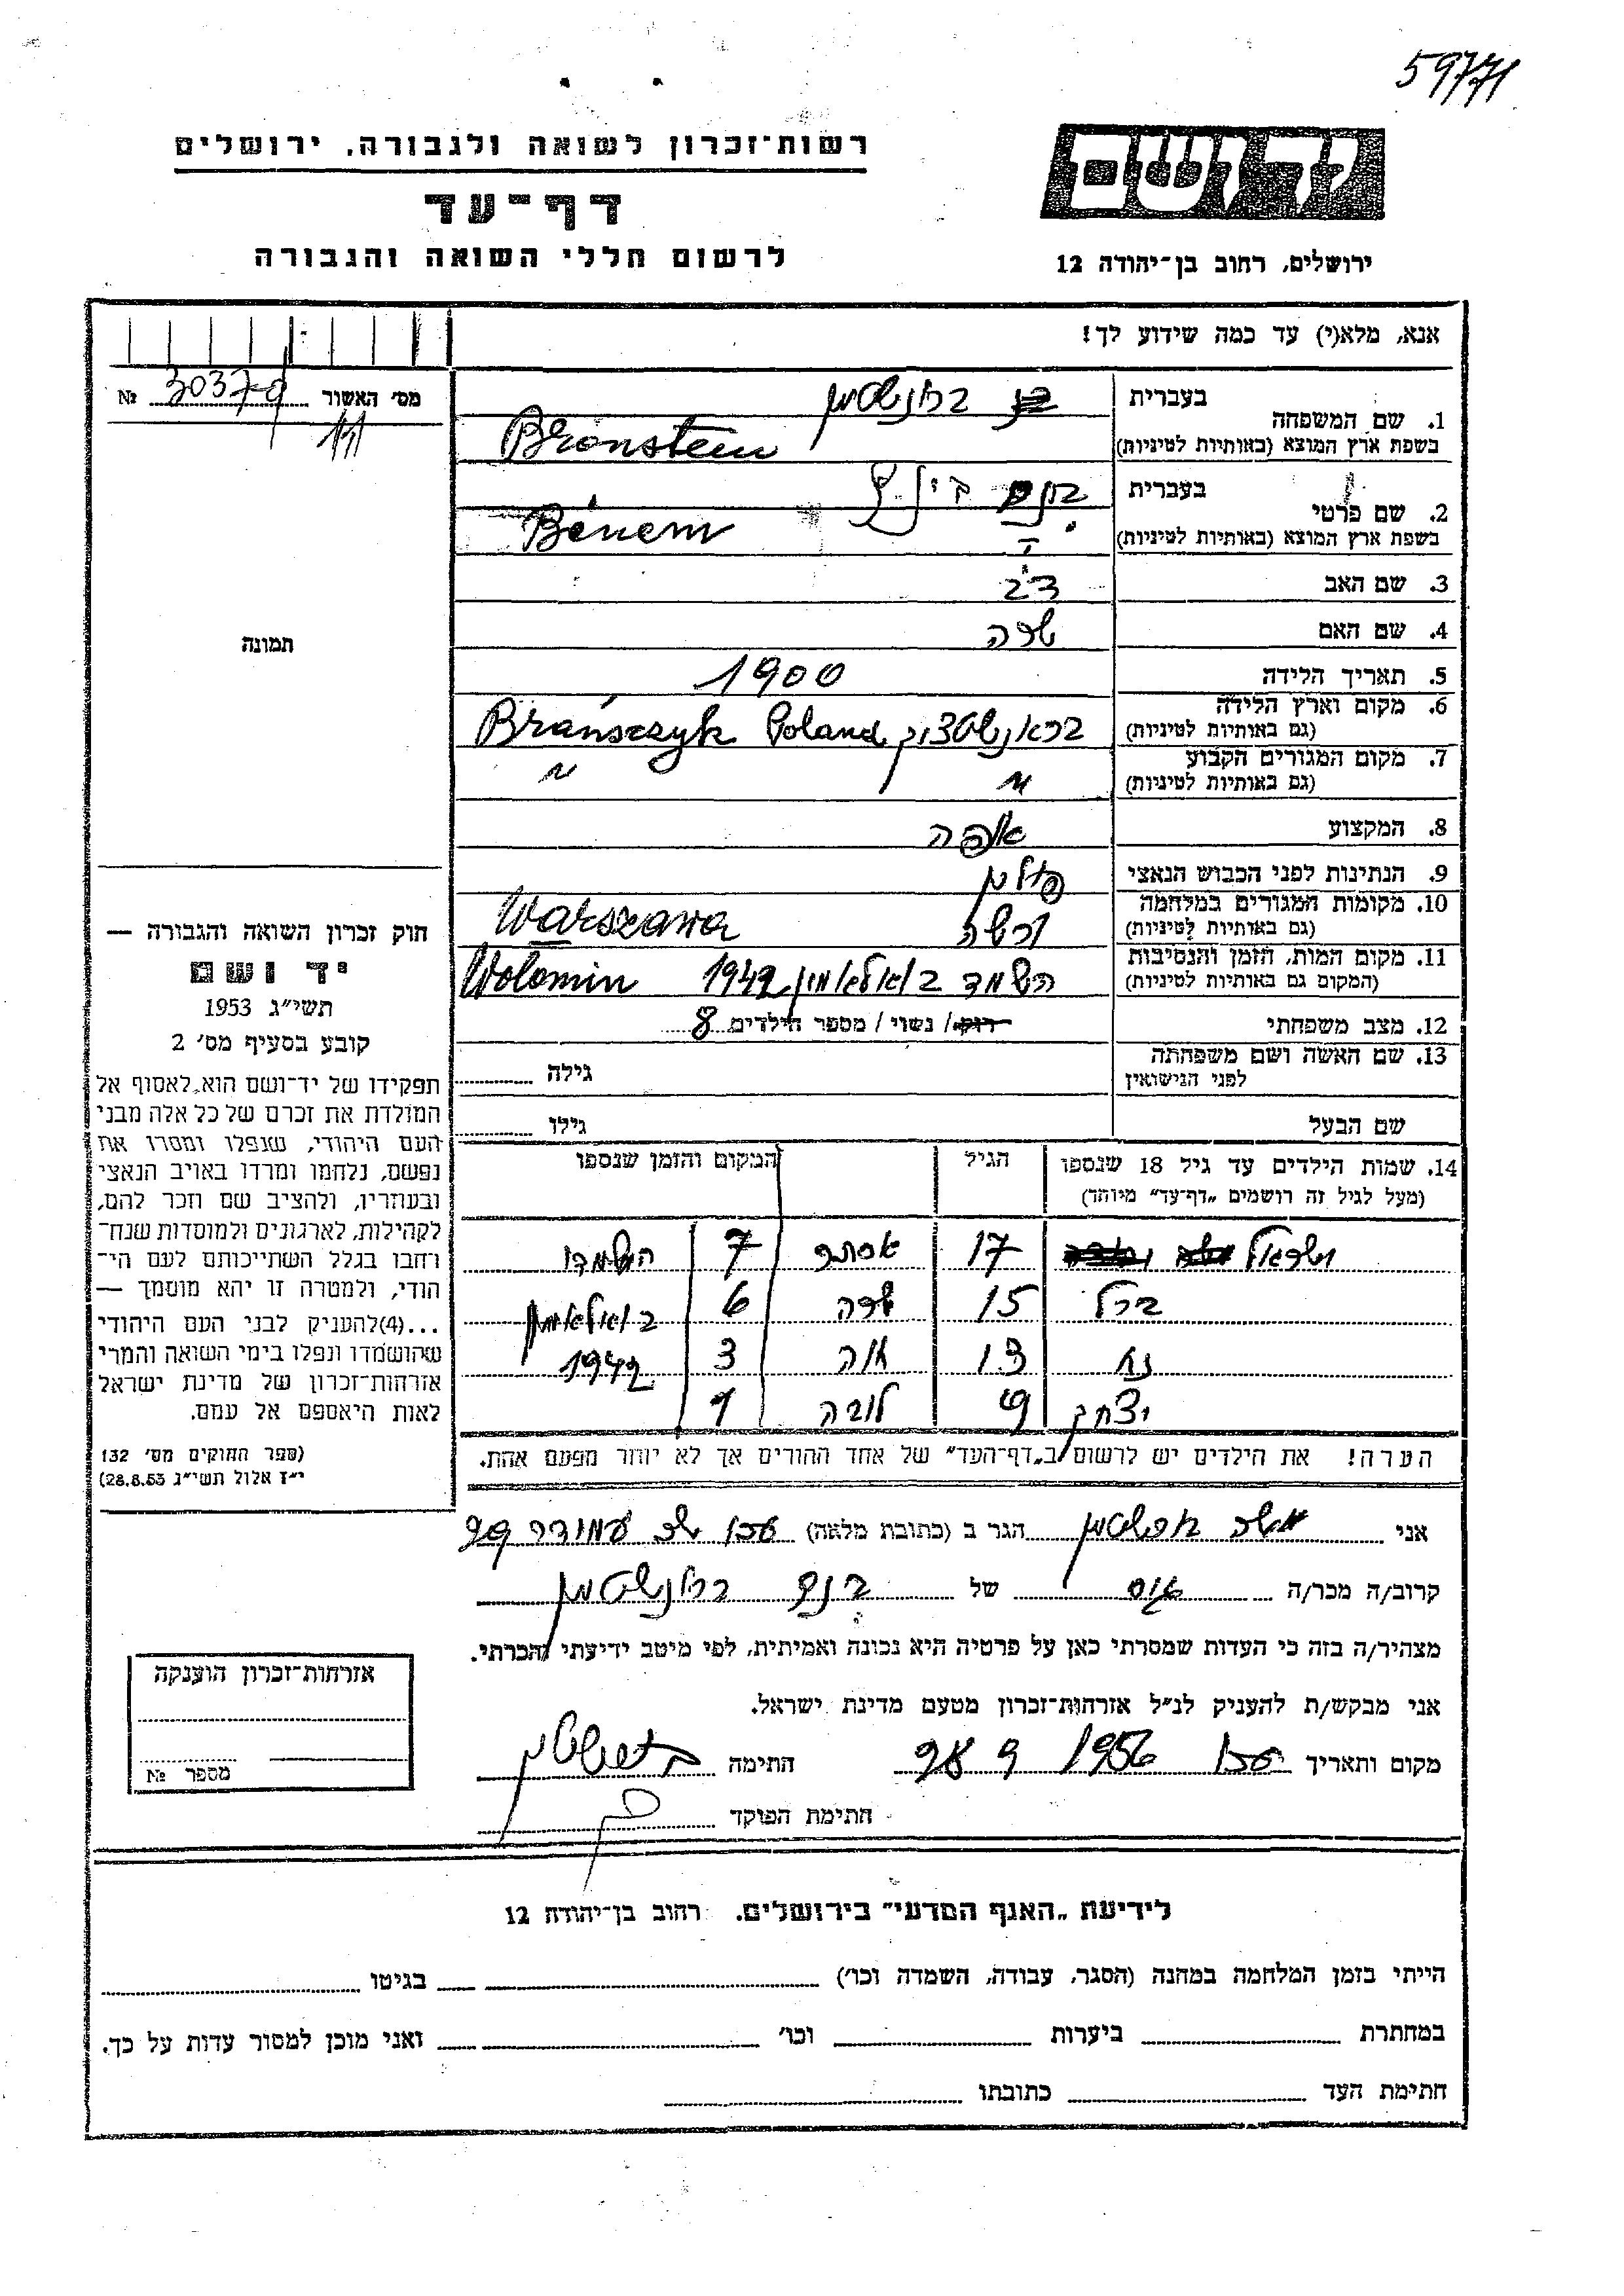 59771
רשות־זכרון לשואה ולגבורה, ירושלים
דף־עד
לרשום חללי השואה והגבורה
יד ושם
ירושלים, רחוב בן־יהודה 12
אנא, מלא(י) עד כמה שידוע לך!
מס׳ האשור 30379 №
תמונה
1. שם המשפחה
בעברית ברונשטיין
בשפת ארץ המוצא (באותיות לטיניות) Bronstein
2. שם פרטי
בעברית בונם
בשפת ארץ המוצא (באותיות לטיניות) Benem
3. שם האב
4. שם האם שרה
5. תאריך הלידה 1900
6. מקום וארץ הלידה
(גם באותיות לטיניות) בראנשטציק Brańszczyk Poland
7. מקום המגורים הקבוע
(גם באותיות לטיניות) " "
8. המקצוע אופה
9. הנתינות לפני הכבוש הנאצי פולין
10. מקומות המגורים במלחמה
(גם באותיות לטיניות) ורשה Warszawa
11. מקום המות, הזמן והנסיבות
(המקום גם באותיות לטיניות) השמד בוואלאמין 1942 Wolomin
12. מצב משפחתי רווק / נשוי / מספר הילדים 8
13. שם האשה ושם משפחתה
לפני הנישואין גילה
שם הבעל גילו
14. שמות הילדים עד גיל 18 שנספו הגיל המקום והזמן שנספו
(מעל לגיל זה רושמים „דף־עד״ מיוחד)
ישראל 17 אסתר 7 השמדו
ברל 15 שרה 6 בוואלאמין
נח 13 חוה 3 1942
יצחק 9 ליבה 1
הערה! את הילדים יש לרשום ב„דף־העד״ של אחד ההורים אך לא יותר מפעם אחת.
חוק זכרון השואה והגבורה —
יד ושם
תשי״ג 1953
קובע בסעיף מס׳ 2
תפקידו של יד־ושם הוא לאסוף אל
המולדת את זכרם של כל אלה מבני
העם היהודי, שנפלו ומסרו את
נפשם, נלחמו ומרדו באויב הנאצי
ובעוזריו, ולהציב שם וזכר להם,
לקהילות, לארגונים ולמוסדות שנח־
רחבו בגלל השתייכותם לעם הי־
הודי, ולמטרה זו יהא מוסמך —
...(4)להעניק לבני העם היהודי
שהושמדו ונפלו בימי השואה והמרי
אזרחות־זכרון של מדינת ישראל
לאות היאספם אל עמם.
(ספר החוקים מס׳ 132
י״ז אלול תשי״ג 28.8.53)
אני אשר ברנשטיין הגר ב (כתובת מלאה)
קרוב/ה מכר/ה של בונם ברונשטיין
מצהיר/ה בזה כי העדות שמסרתי כאן על פרטיה היא נכונה ואמיתית, לפי מיטב ידיעתי והכרתי.
אני מבקש/ת להעניק לנ״ל אזרחות־זכרון מטעם מדינת ישראל.
מקום ותאריך 1956 9 חתימה
חתימת הפוקד
אזרחות־זכרון הוענקה
מספר №
לידיעת „האגף המדעי״ בירושלים. רחוב בן־יהודה 12
הייתי בזמן המלחמה במחנה (הסגר, עבודה, השמדה וכו׳) בגיטו
במחתרת ביערות וכו׳ ואני מוכן למסור עדות על כך.
חתימת העד כתובתו